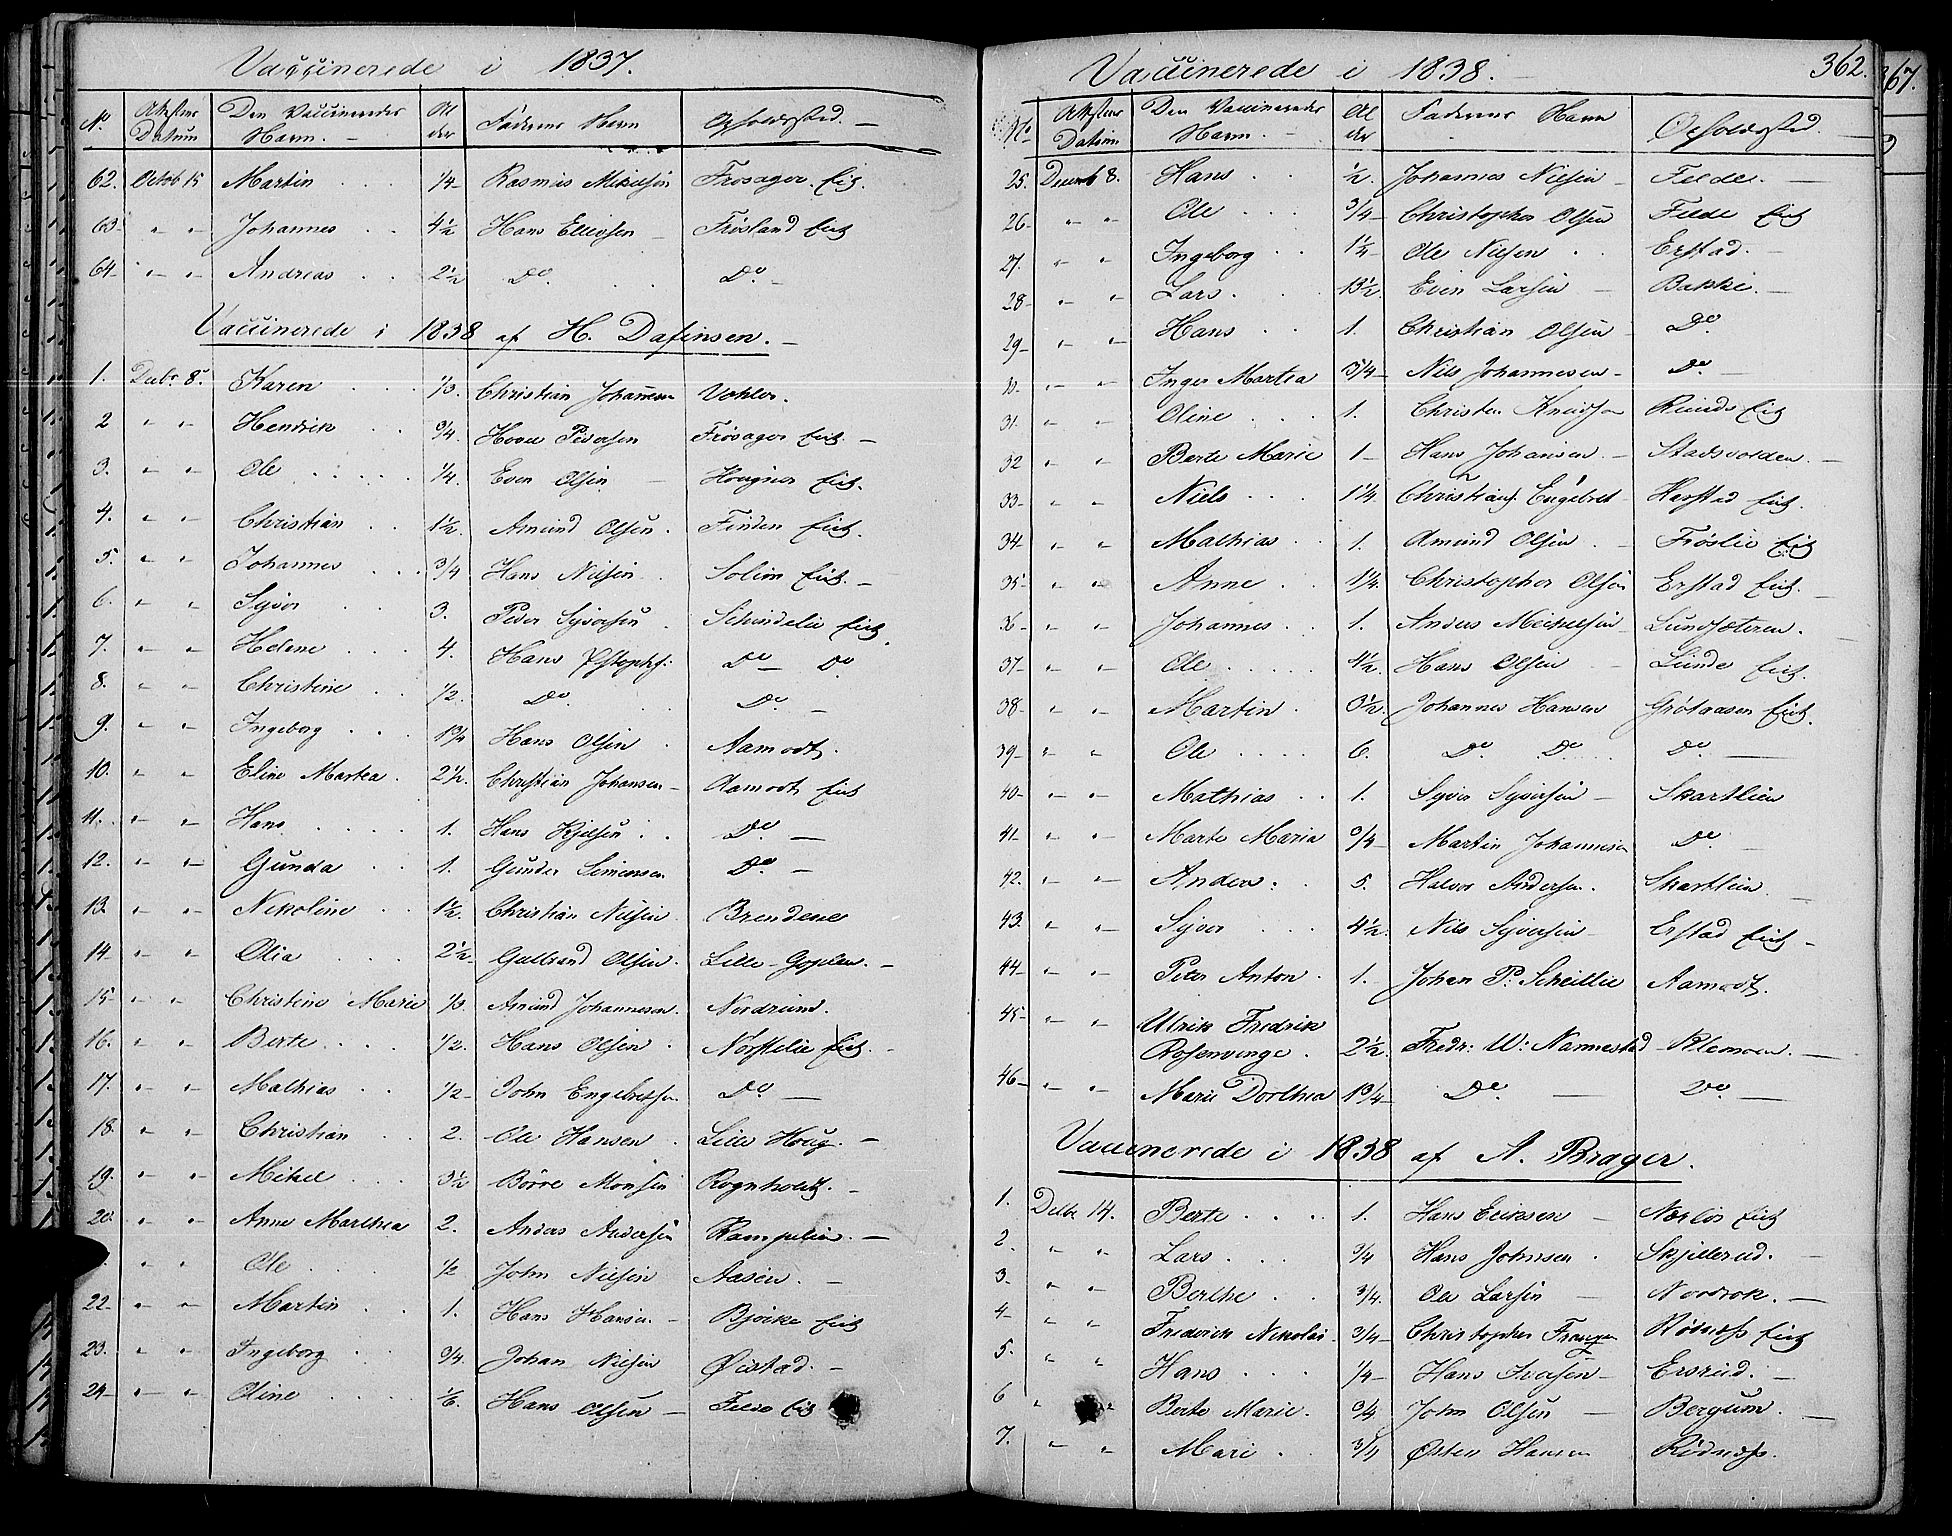 Vaccinerede i 1837.
No Attestens Datum Den Vaccineredes Navn. Alder Faderens Navn Opholdssted.
62. Octob 15 Martin 1/4 Rasmus Mikelsen Frösager Eie.
63. " " Johannes 4 1/2 Hans Ellevsen Frösland Eie
64 " " Andreas 2 1/2 Do. Do.
Vaccinerede i 1838 af H. Dafinsen.
1. Decbr 8. Karen 1/3. Christian Johannesen Vohler.
2 " " Hendrik 3/4. Hover Pedersen Frösager Eie.
3. " " Ole 1/4. Even Olsen Hougner Eie.
4. " " Christian 1 1/2. Amund Olsen. Finden Eie.
5. " " Johannes 3/4 Hans Nilsen Solim Eie.
6. " " Syver 3. Peder Syversen Schindelie Eie.
7. " " Helene 4. Hans Chstophs: Do Do
8. " " Christine 1/2. Do. Do.
9. " " Ingeborg 1 3/4 Hans Olsen Aamodt.
10. " " Eline Martea. 2 1/2. Christian Johansen Aamodt Eie
11. " " Hans 1. Hans Kjelsen Do
12. " " Gunda 1. Gunder Simensen Do.
13. " " Nikoline 1 1/2. Christian Nilsen Brendene
14. " " Olia 2 1/2. Gulbrand Olsen. Lille-Goplen.
15 " " Christine Marie 1/3. Amund Johannesen. Nordrum.
16. " " Berte 1/2. Hans Olsen Norstelie Eie.
17. " " Mathias 1/2 John Engebretsen Do
18. " " Christian 2. Ole Hansen Lille Houg.
19. " " Mikel 3 1/2 Börre Monsen Rognholt.
20. " " Anne Marthea 2. Anders Andersen Rampelien.
" " Ole 1/2 John Nilsen Aasen.
22. " " Martin 1. Hans Hansen Bjerke Eie
23. " " Ingeborg 3/4. Johan Nilsen Öistad.
24 " " Oline 1/6. Hans Olsen Felde Eie
Vaccinerede i 1838. 362.
No Attestens Datum Den Vaccineredes Navn. Alder Faderens Navn Opholdssted.
25. Decemb 8. Hans 1/2. Johannes Nilsen Felde.
26 " " Ole 3/4 Christopher Olsen Felde Eie
27. " " Ingeborg 1 1/4 Ole Nilsen Erstad.
28 " " Lars. 13 1/2. Even Larsen Bakke.
29 " " Hans 1. Christian Olsen Do
" " Inger Martea 3/4 Nils Johannesen Do.
31. " " Oline 1. Christen Knudsen Eie
32 " " Berte Marie 1 Hans Johansen Stadsvolden.
33 " " Niels 1 1/4. Christian Engebret Harstad Eie.
34 " " Mathias 1. Amund Olsen Fröslie Eie
35 " " Anne 1 1/4. Christopher Olsen Erstad Eie.
36 " " Johannes 1. Anders Mickelsen Lundsæteren.
37 " " Ole 4 1/2. Hans Olsen Lunde Eie.
38 " " Martin. 3 1/2. Johannes Hansen Grötaasen Eie.
39 " " Ole 6. Do Do. Do.
40 " " Mathias 1. Syver Syversen Skartlien
41 " " Marte Maria 3/4 Martin Johannesen Do.
42. " " Anders. 5. Halvor Andersen. Skartlien
43. " " Syver 4 1/2. Nils Syversen Erstad Eie
44 " " Peter Anton 1. Johan P. Scheillie Aamodt.
45 " " Ulrik Fredrik
Rosenvinge. 2 1/2. Fredr: W: Nannestad Blemoen.
46 " " Marie Dorthea 1 3/4 Do. Do.
Vaccinerede i 1838 af A. Brager.
1. Decbr 14. Berte 1. Hans Eriksen Nærlös Eie
2. " " Lars 3/4 Hans Johnsen Skjillerud.
3 " " Berthe 3/4. Ole Larsen Nordrok.
4 " " Frederik Nikolai 3/4 Christopher Fransen Rödnæs Eie
5. " " Hans 1/4 Hans Iversen Ersrud.
6 " " Berte Marie. 3/4 John Olsen Bergum.
7. " " Mari 3/4 Östen Hansen Rödnæs.
367.